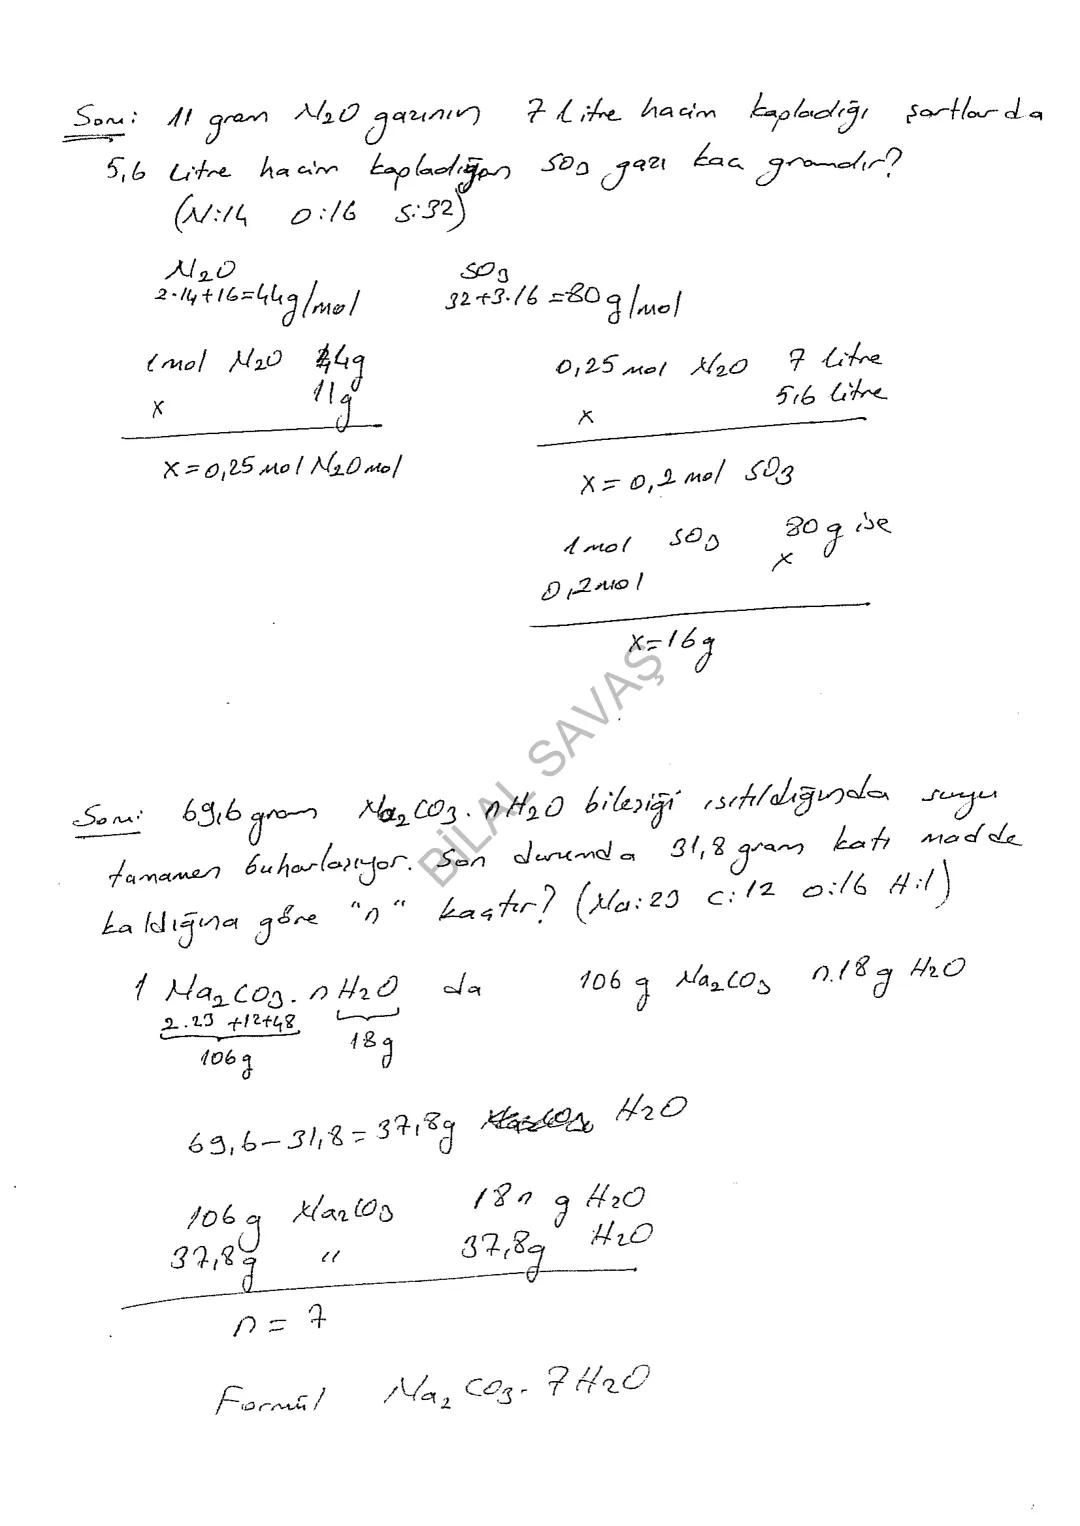 Soru: 11 gram N₂O gazının 7 Litre hacim kapladığı şartlarda
5,6 Litre hacim kapladığan SO₃ gazı kaç gramdır?
(N:14 O:16 S:32)
N₂O SO₃
2.14+16=44g/mol 32+3.16=80g/mol
1mol N₂O 44g 0,25 mol N₂O 7 litre
x 11g x 5,6 litre
x=0,25 mol N₂O mol
x=0,2 mol SO₃
1mol SO₃ 80g ise
0,2mol x
x=16g
BİLAL SAVAŞ
Soru: 69,6 gram Na₂CO₃.nH₂O bileşiği ısıtıldığında suyu
tamamen buharlaşıyor. Son durumda 31,8 gram katı madde
kaldığına göre "n" kaçtır? (Na:23 C:12 O:16 H:1)
1 Na₂CO₃.nH₂O da 106 g Na₂CO₃ n.18g H₂O
2.23+12+48
106g 18g
69,6-31,8=37,8g H₂O
106g Na₂CO₃ 18n g H₂O
37,8g " 37,8g H₂O
n=7
Formül Na₂CO₃.7H₂O